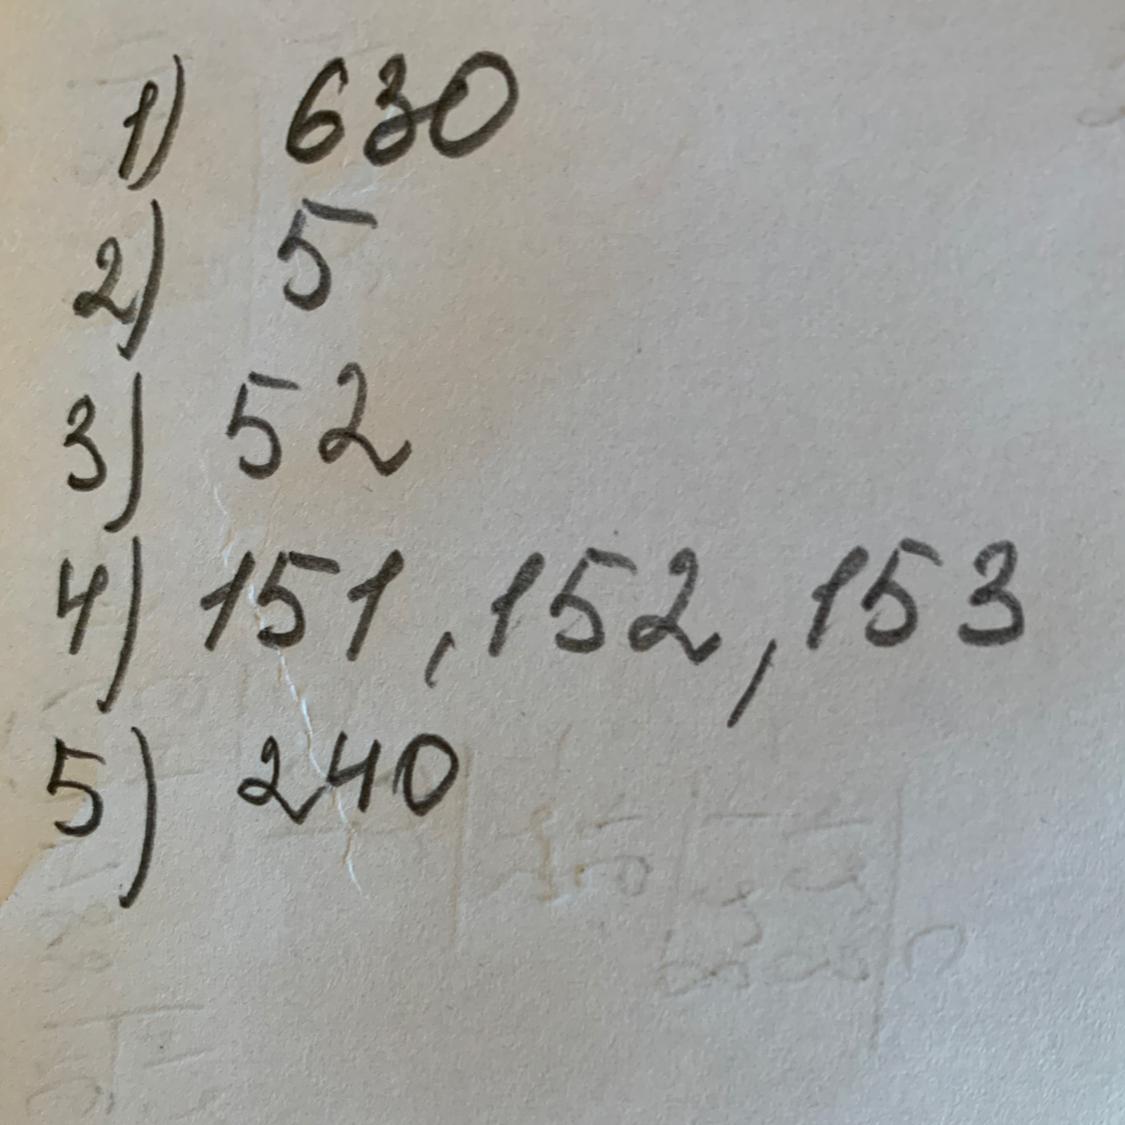 1) 630
2) 5
3) 52
4) 151, 152, 153
5) 240